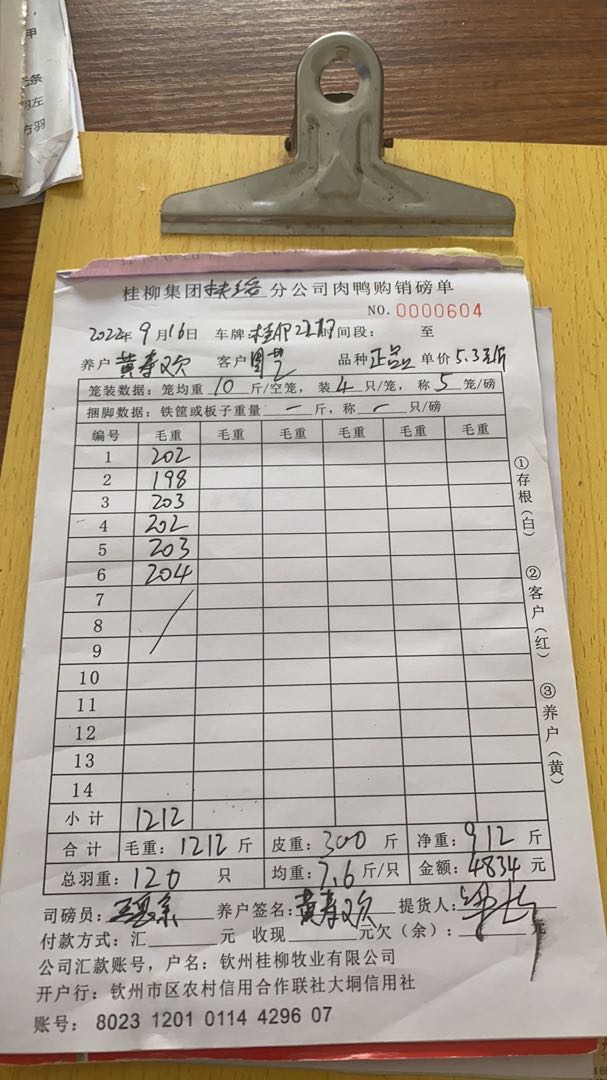 桂柳集团 分公司肉鸭购销磅单
NO. 0000604
2022年9月16日 车牌 时间段: 至
养户 黄寿欢 客户 品种 正品 单价 5.3元/斤
笼装数据: 笼均重 10 斤/空笼, 装 4 只/笼, 称 5 笼/磅
捆脚数据: 铁筐或板子重量 一 斤, 称 一 只/磅
编号 毛重 毛重 毛重 毛重 毛重 毛重
1 202
2 198
3 203
4 202
5 203
6 204
7
8
9
10
11
12
13
14
小计 1212
合计 毛重: 1212 斤 皮重: 300 斤 净重: 912 斤
总羽重: 120 只 均重: 7.6 斤/只 金额: 4834 元
司磅员: 养户签名: 黄寿欢 提货人:
付款方式: 汇 元 收现 元欠(余): 元
公司汇款账号, 户名: 钦州桂柳牧业有限公司
开户行: 钦州市区农村信用合作联社大垌信用社
账号: 8023 1201 0114 4296 07
①存根(白)
②客户(红)
③养户(黄)